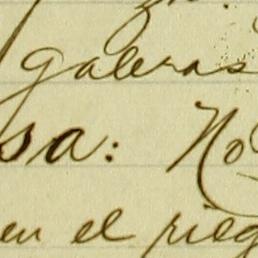 galeras
sa: No
en el rieg